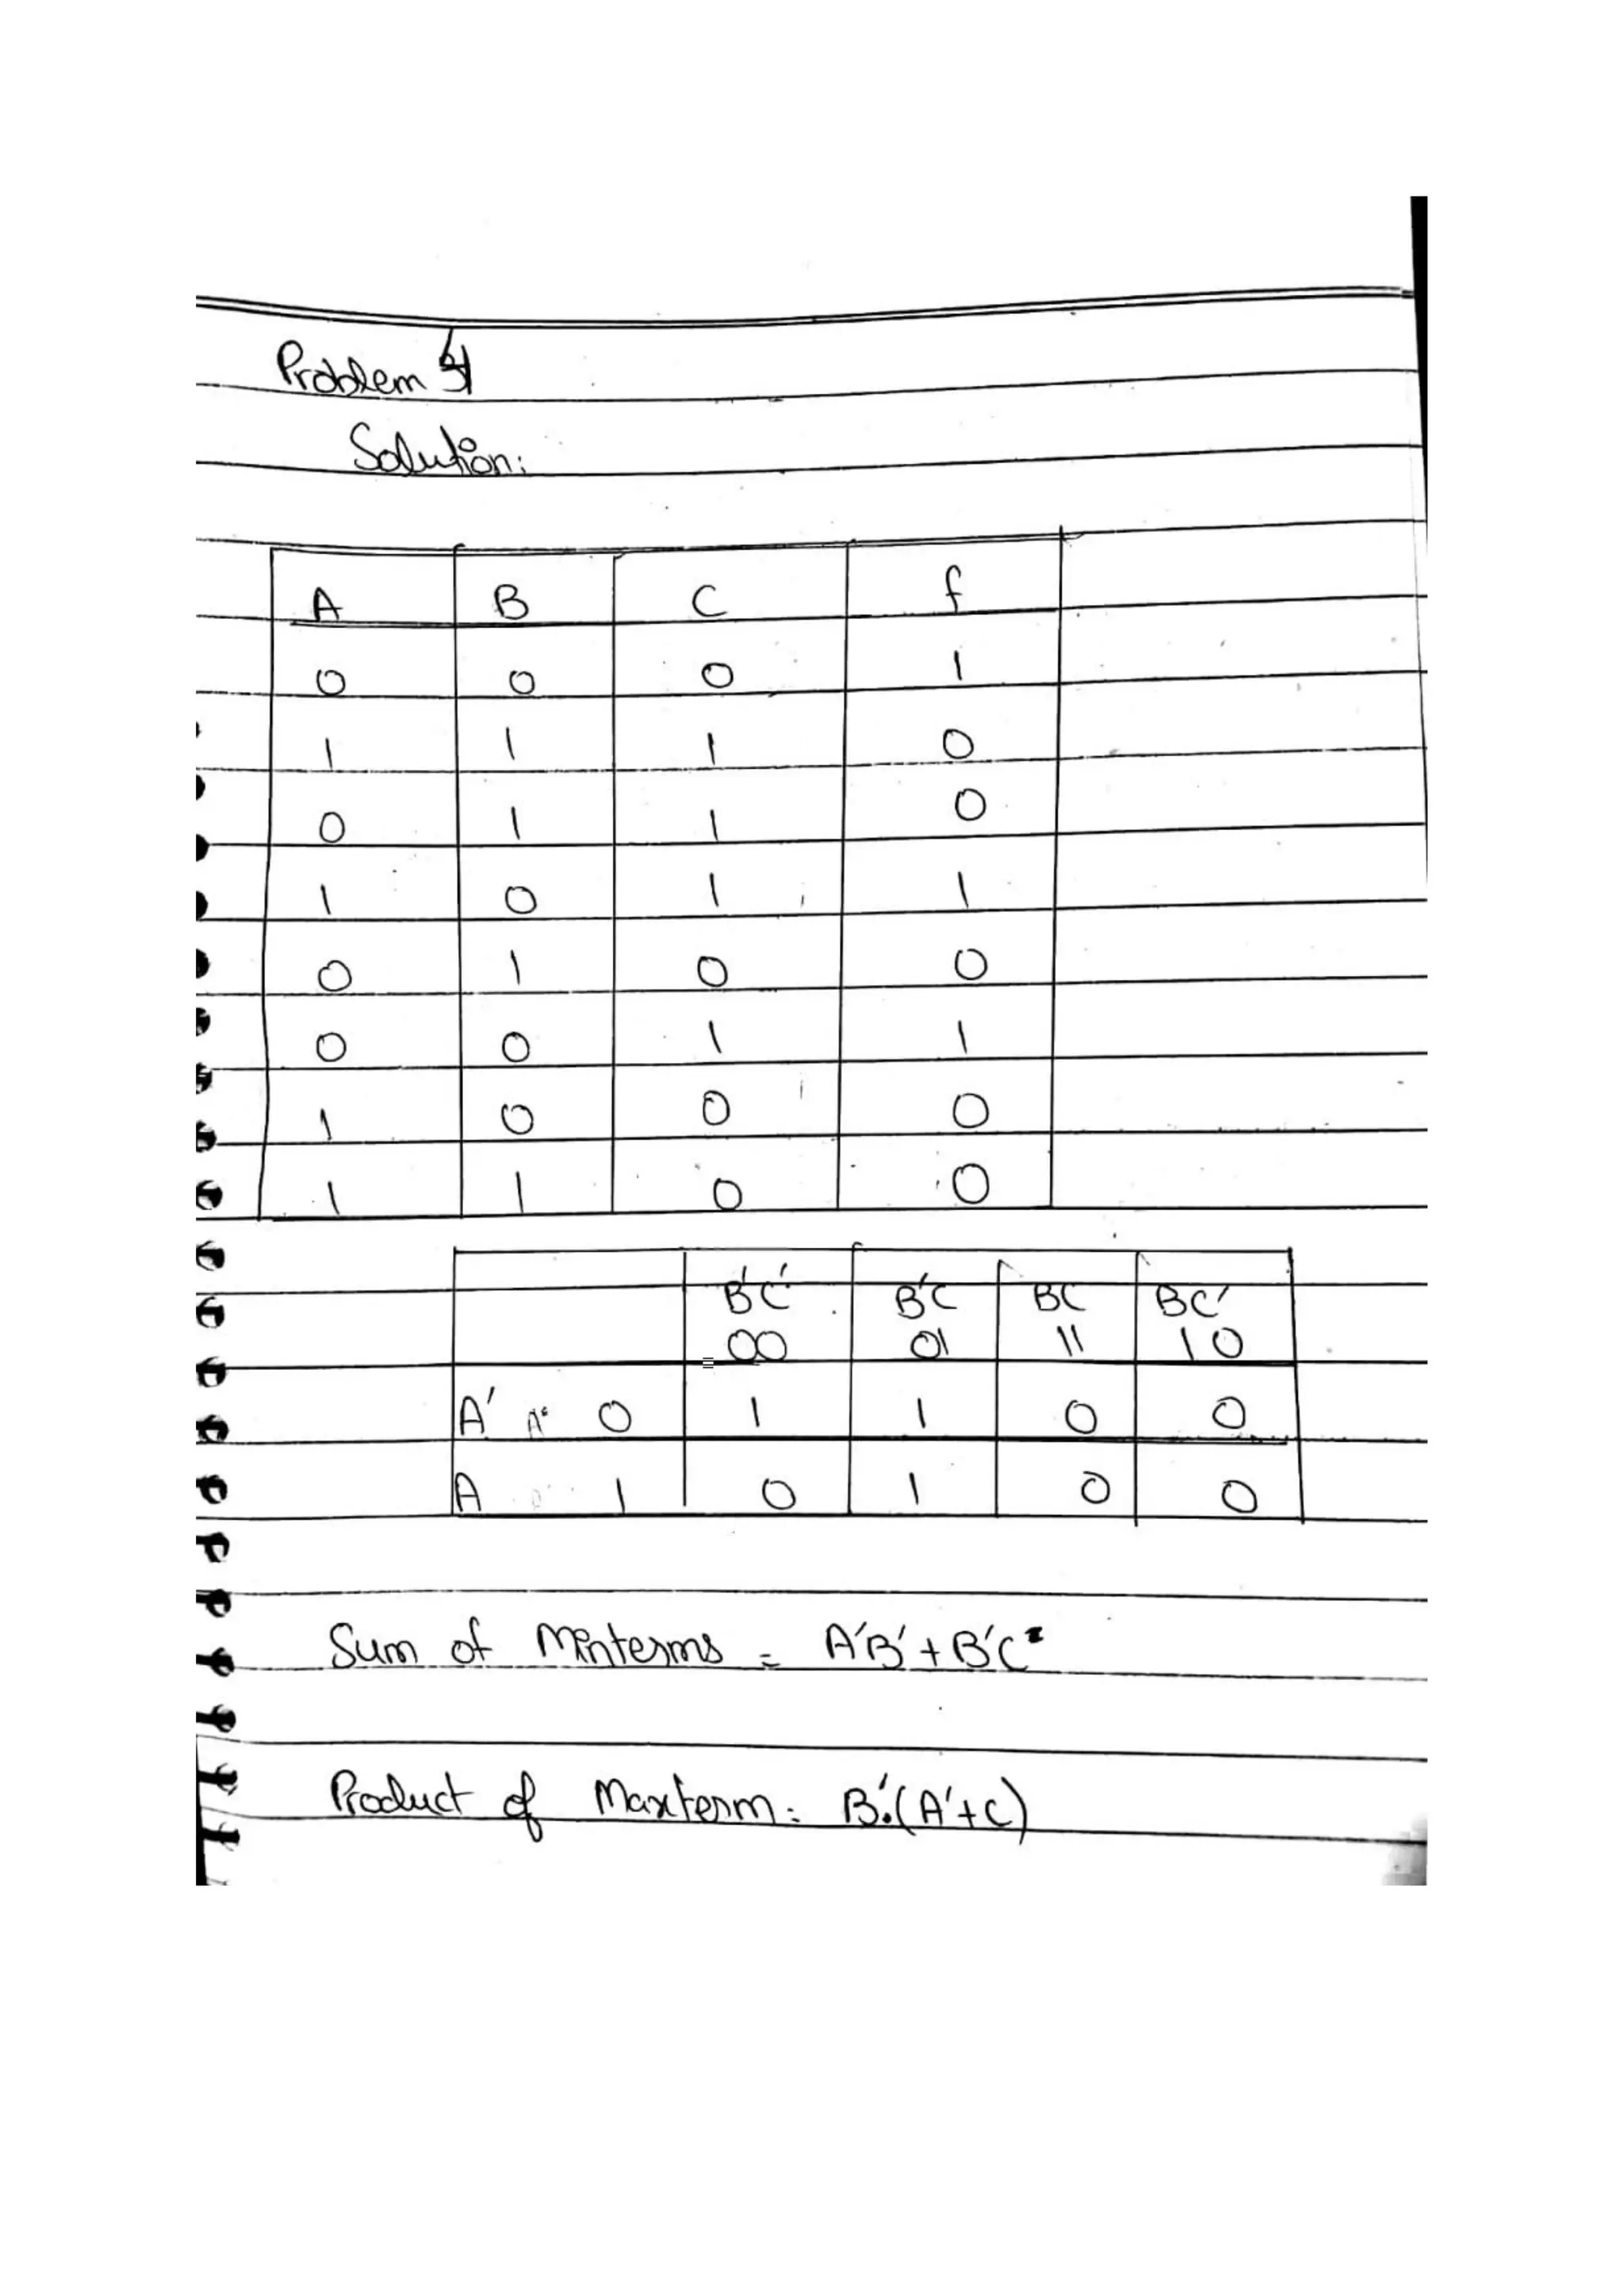 Problem 4
Solution:
A B C f
0 0 0 1
1 1 1 0
0 1 1 0
1 0 1 1
0 1 0 0
0 0 1 1
1 0 0 0
1 1 0 0
B'C' B'C BC BC'
00 01 11 10
A' 0 1 1 0 0
A 1 0 1 0 0
Sum of Minterms = A'B' + B'C
Product of Maxterm: B'.(A'+C)